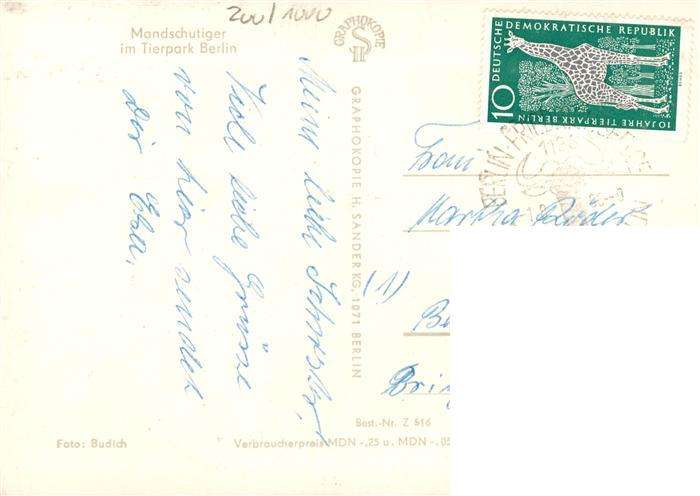 200/1000
Mandschutiger
im Tierpark Berlin
GRAPHOKOPIE
Meine liebe Schwester,
Viele liebe Grüsse
von hier sendet
Dir Ella.
GRAPHOKOPIE H. SANDER KG, 1071 BERLIN
DEUTSCHE DEMOKRATISCHE REPUBLIK
10
10 JAHRE TIERPARK BERLIN
BERLIN-FRIEDRICHSFELDE
Frau
Martha Röder
(1)
Best.-Nr. Z 516
Foto: Budich
Verbraucherpreis MDN -,25 u. MDN -,05